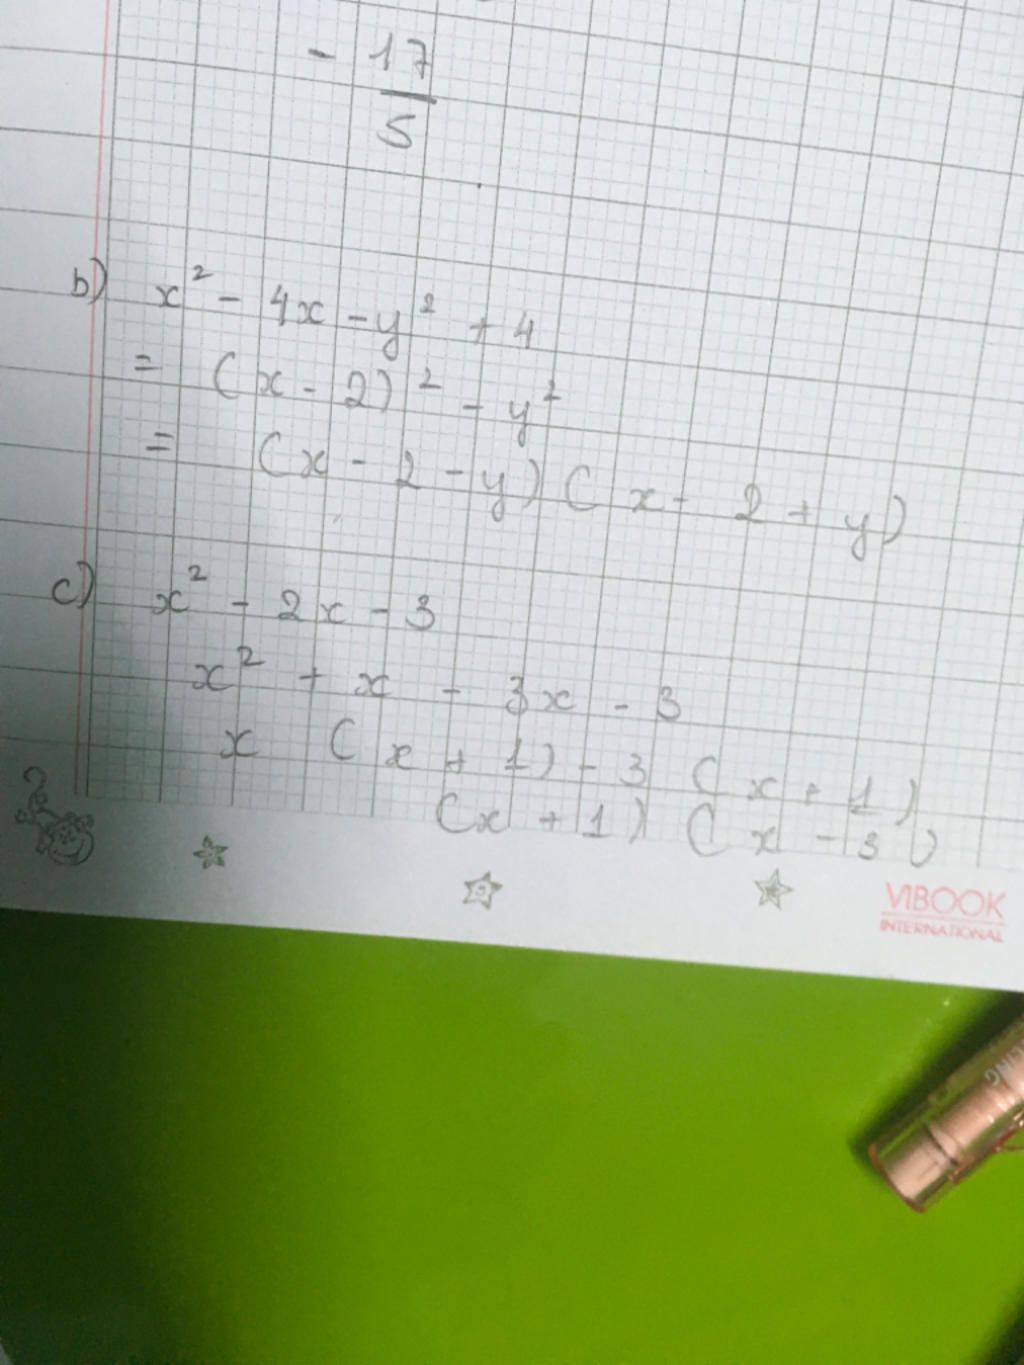 - 17
5
b) x² - 4x - y² + 4
= (x - 2)² - y²
= (x - 2 - y) (x - 2 + y)
c) x² - 2x - 3
x² + x - 3x - 3
x (x + 1) - 3 (x + 1)
(x + 1) (x - 3)
VIBOOK
INTERNATIONAL